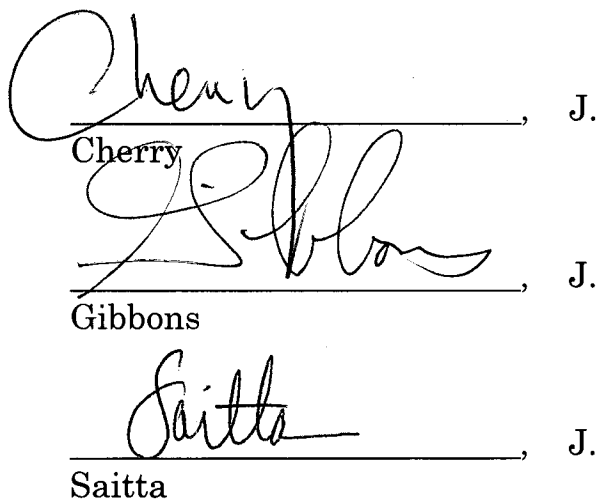 Cherry, J.
Cherry
Gibbons, J.
Gibbons
Saitta, J.
Saitta